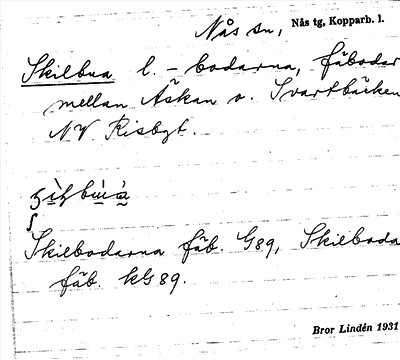 Nås sn, Nås tg, Kopparb. l.
Skilbua l. - bodarna, fäbodar
mellan Åskan o. Svartbäcken
NV Risbyt.
Skilbodarna fäb. G89, Skilboda
fäb. kG 89.
Bror Lindén 1931